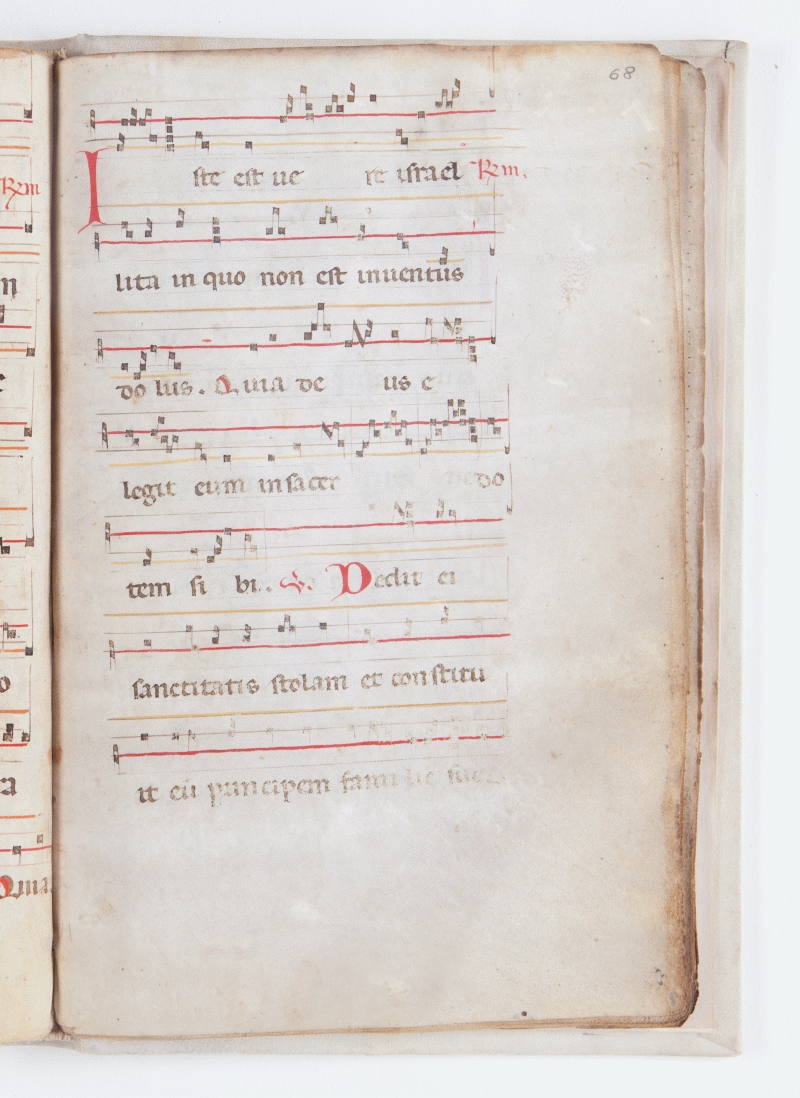 68
Iste est ue re israel R̃m.
lita in quo non est inuentus
do lus. Quia de us e
legit eum in sacer do
tem si bi. V. Dedit ei
sanctitatis stolam et constitu
it eũ principem familie sue
R̃m
Quia